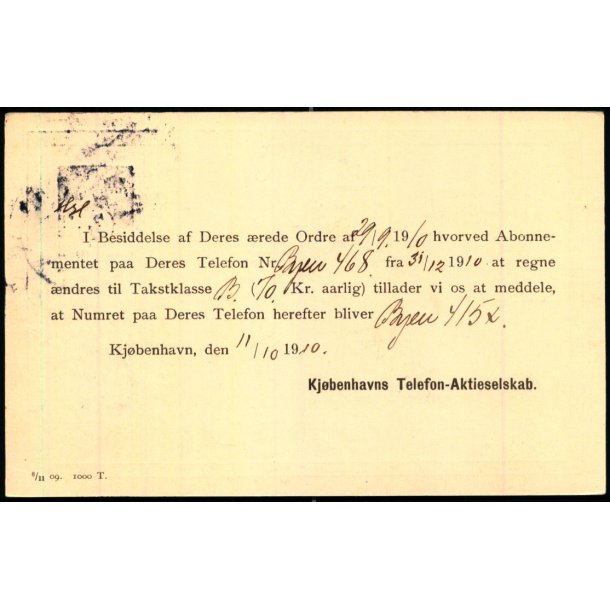 I Besiddelse af Deres ærede Ordre af 29/9. 1910 hvorved Abonne-
mentet paa Deres Telefon Nr. Byen 468. fra 31/12 1910 at regne
ændres til Takstklasse B. (70 Kr. aarlig) tillader vi os at meddele,
at Numret paa Deres Telefon herefter bliver Byen 415x.
Kjøbenhavn, den 11/10 1910.
Kjøbenhavns Telefon-Aktieselskab.
6/11 09. 1000 T.